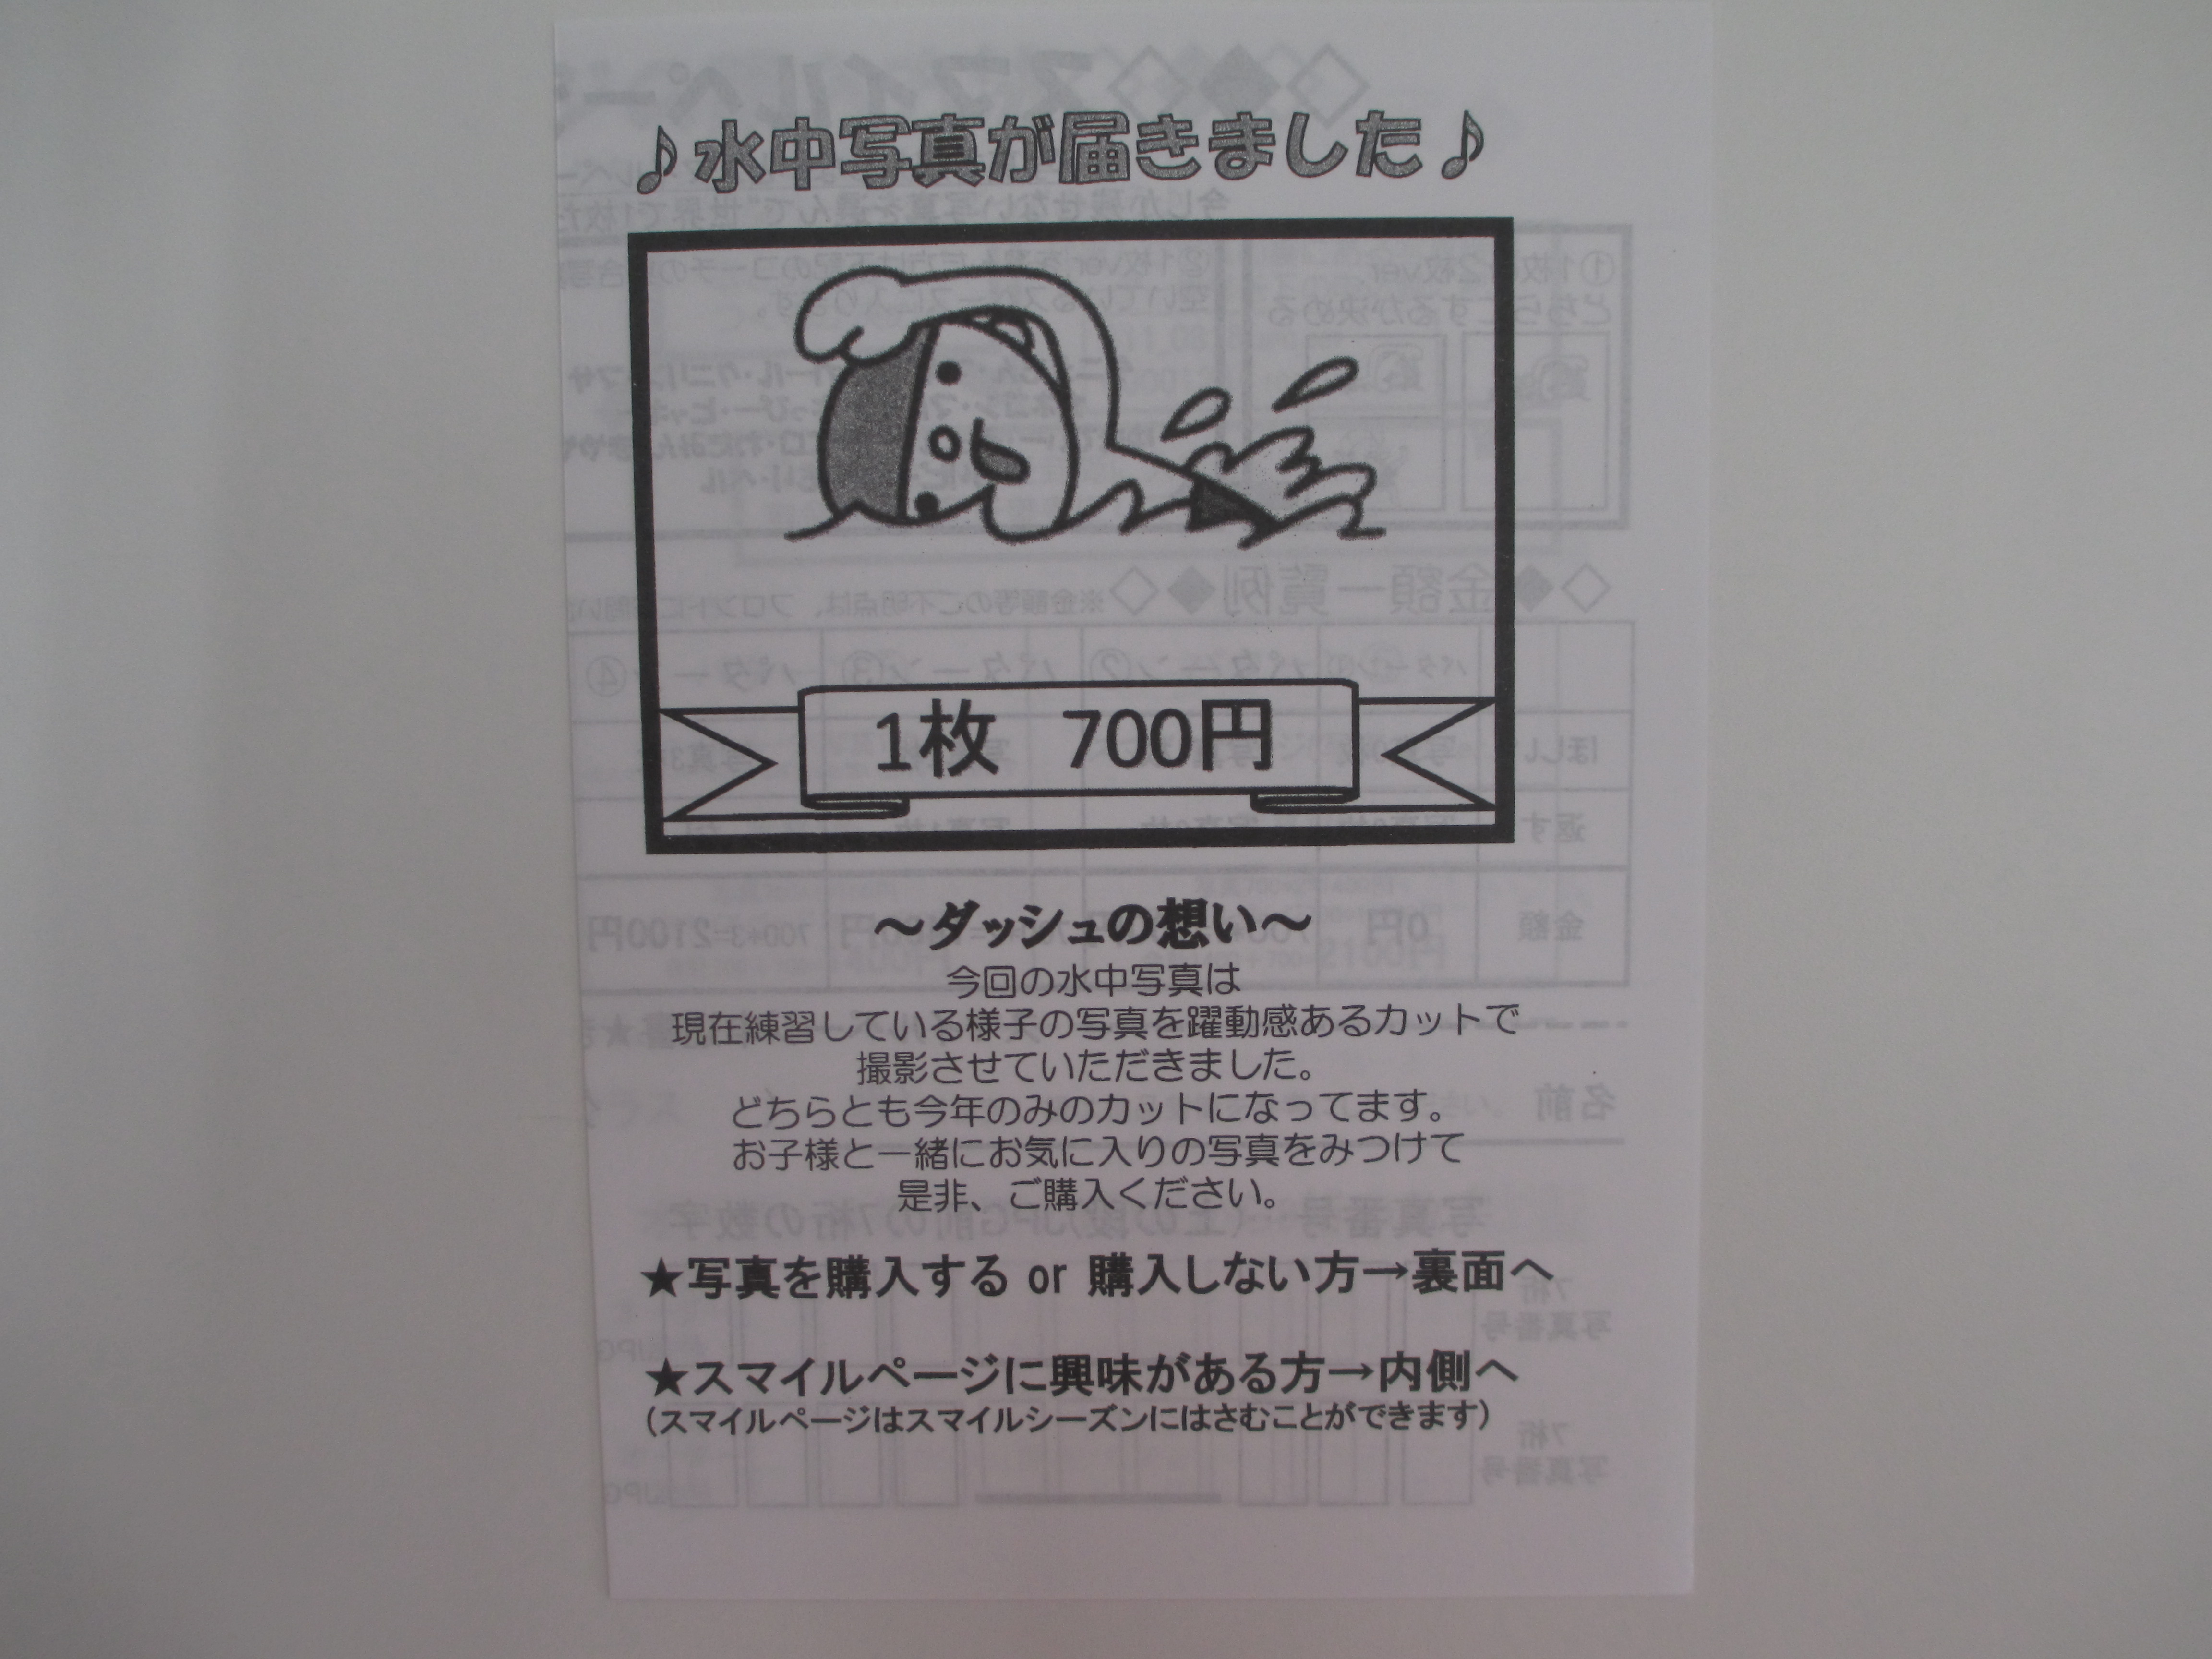 ♪水中写真が届きました♪
1枚 700円
～ダッシュの想い～
今回の水中写真は
現在練習している様子の写真を躍動感あるカットで
撮影させていただきました。
どちらとも今年のみのカットになってます。
お子様と一緒にお気に入りの写真をみつけて
是非、ご購入ください。
★写真を購入する or 購入しない方→裏面へ
★スマイルページに興味がある方→内側へ
（スマイルページはスマイルシーズンにはさむことができます）